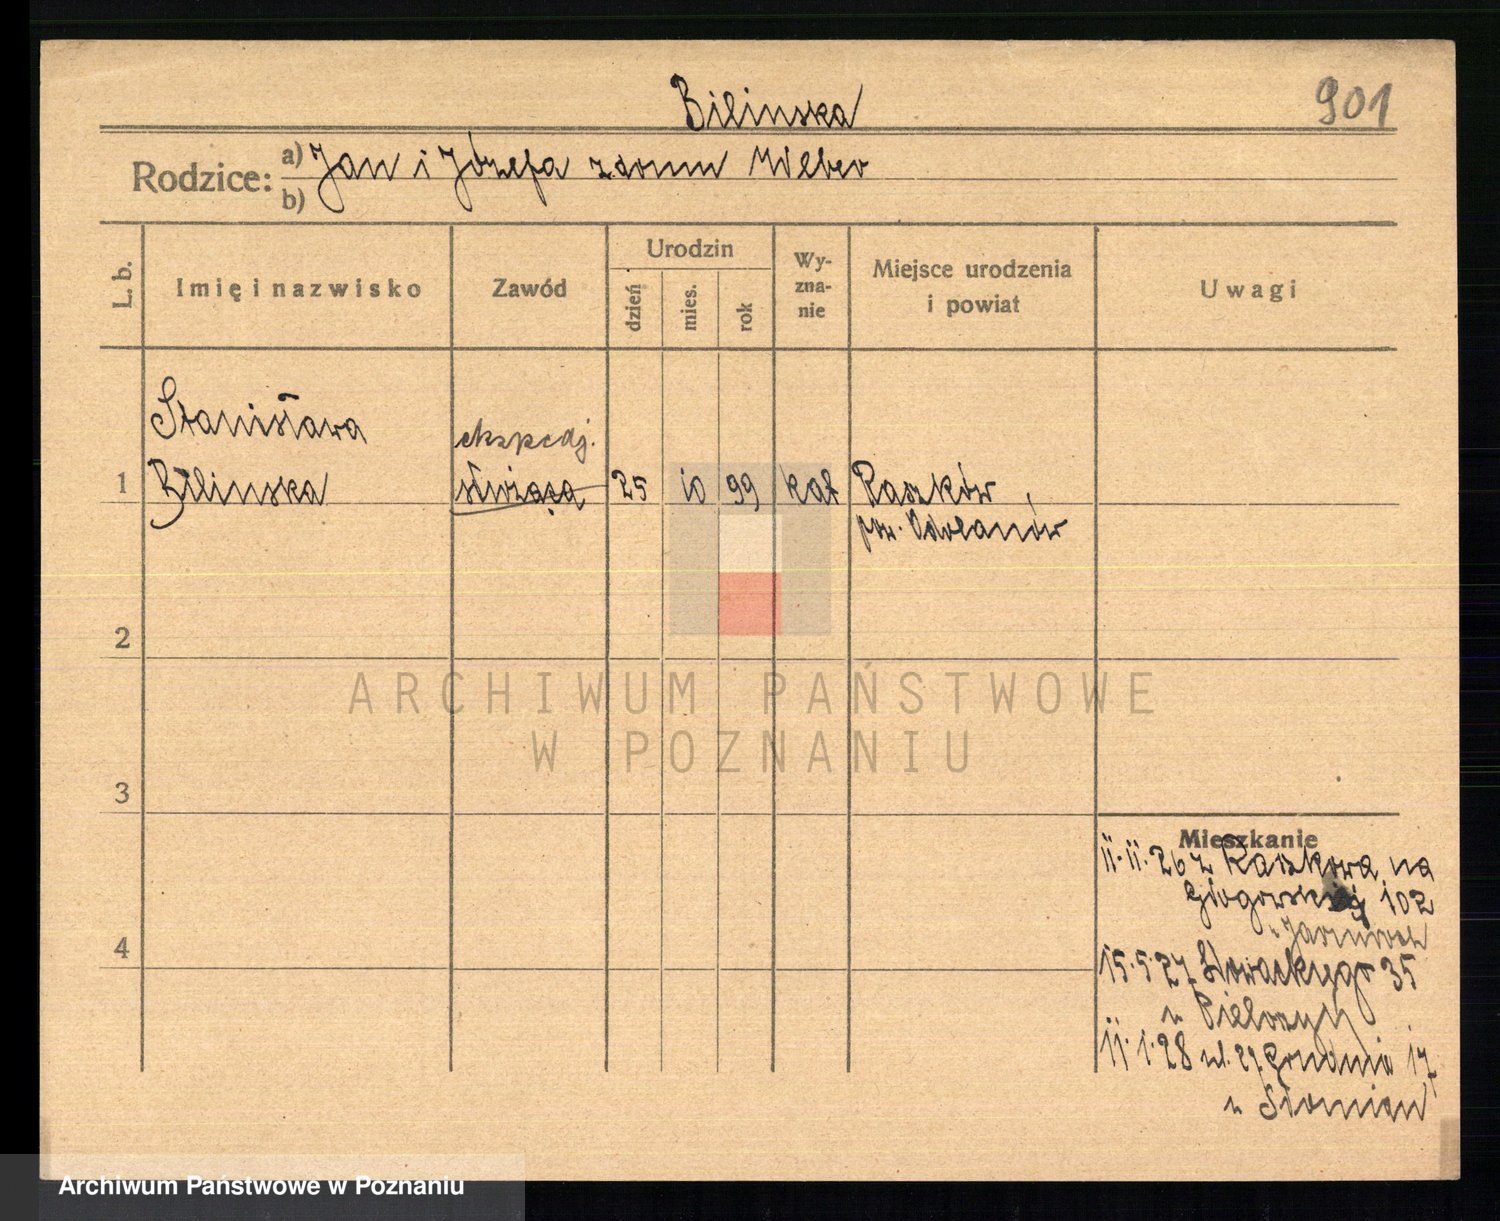 Bilinska
901
Rodzice:
a) Jan i Józefa z domu Weber
b)
L. b.
Imię i nazwisko
Zawód
Urodzin
dzień
mies.
rok
Wy-
zna-
nie
Miejsce urodzenia
i powiat
Uwagi
Stanisława
ekspedj.
1 Bilinska służąca 25 10 99 kat Raszków,
pow. Odolanów
2
ARCHIWUM PAŃSTWOWE
W POZNANIU
3
Mieszkanie
11.11.26 z Raszkowa na
Głogowskiej 102
4
15.5.27 Słowackiego 35
u
11.1.28 ul. 27 Grudnia 17
u Słomian
Archiwum Państwowe w Poznaniu